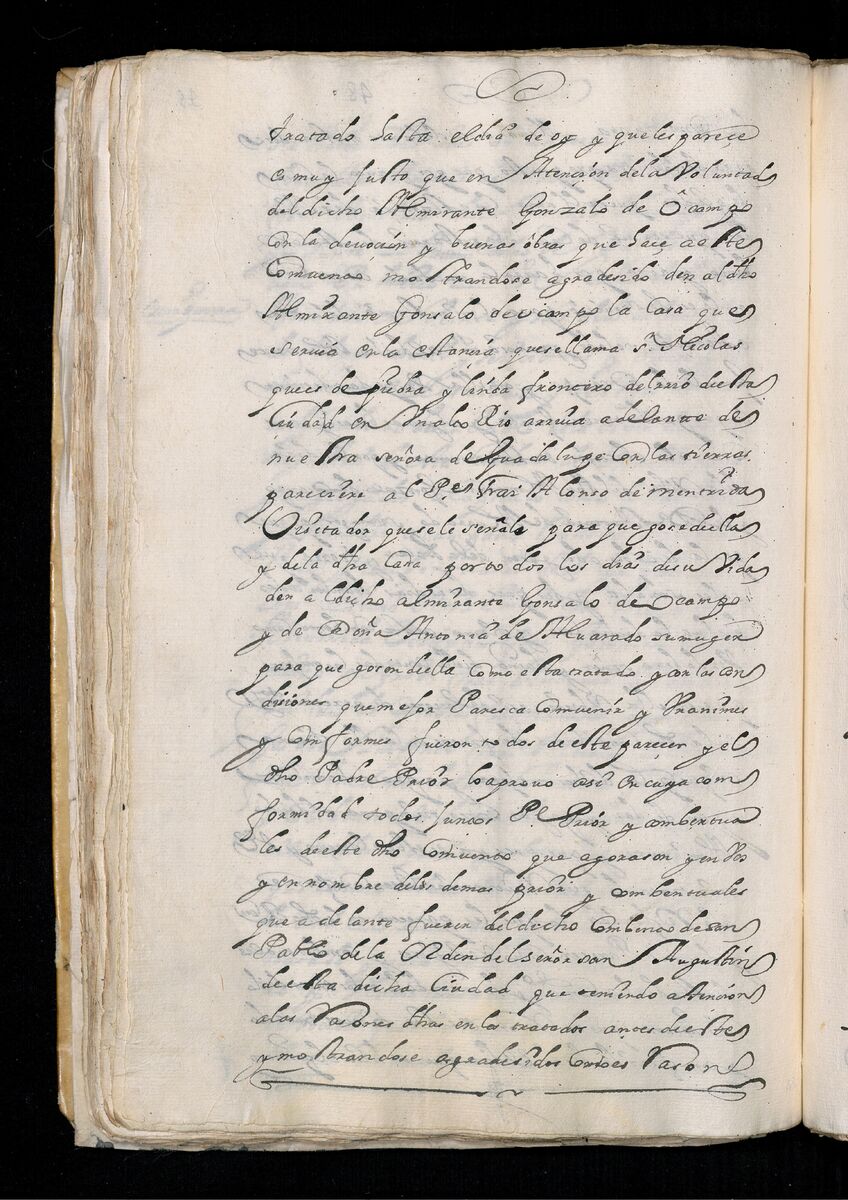 tratado hasta el dia de oy y que les pareçe
es muy justo que en Atençion de la Voluntad
del dicho Almirante Gonzalo de Ocampo
con la devoçion y buenas obras que haçe a este
Comuento mostrandose agradesido den al dho
Almirante Gonsalo de ocampo la Casa que
seruia en la estançia que se llama sn. Nicolas
que es de piedra y linda frontero del rrio desta
Ciudad en Rio arriua adelante de
nuestra señora de Guadalupe con las tierras
pareciere al Pe. Frai Alonso de mentrida
Visitador que se le señale para que gose della
y de la dha Casa por todos los dias de su Vida
den al dicho almirante Gonsalo de Ocampo
y de Doña Antonia de Aluarado su muger
para que gosen della como esta tratado y con las con
disiones que mejor Paresca Comvenir y Vnanimes
y Comformes fueron todos de este pareçer y el
dho Padre Prior lo aprouo asi en cuya com
formidad todos juntos Pe. Prior y combentua
les de este dho Comuento que agora son y en Vos
y en nombre de los demas prior y combentuales
que adelante fueren del dicho Combento de san
Pablo de la Orden del señor san Augustin
de esta dicha Ciudad que teniendo atençion
a las Rasones dhas en los tratados antes de este
y mostrandose agradesidos Rason